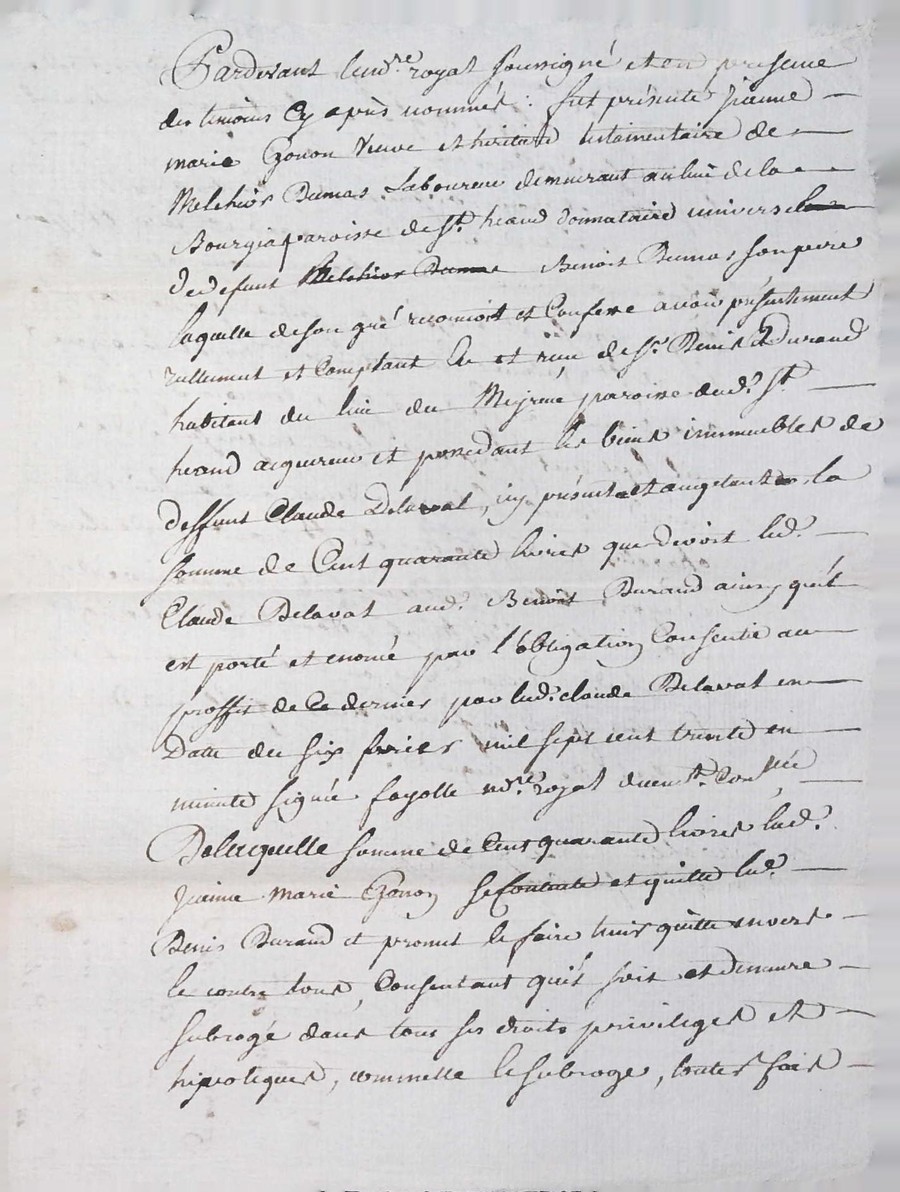 Pardevant le no.re royal soussigné et en presence
des temoins cy après nommés : fut présente Jeanne
marie Chonon veuve et heritiere testamentaire de
Melchior Dumas Laboureur demeurant au lieu de la
Bourgia paroisse de St. heand donnataire universelle
de defunt Melchior Dumas Benoit Dumas son pere
laquelle de son gré reconnoit et confesse avoir présentement
reellement et comptant eu et receu de Sr. Denis Durand
habitant du lieu du paroisse dud. St.
heand acquereur et possedant les biens immeubles de
deffunt Claude Delaval, icy présent et acceptant la
somme de Cent quarante livres que devoit led.
Claude Delaval aud. Benoit Durand ainsy qu'il
est porté et enoncé par l'obligation consentie au
proffit de ce dernier par led. claude Delaval en
Date du six fevrier mil sept cent trente en
minute signée fayolle no.re royal
De laquelle somme de Cent quarante livres lad.
Jeanne Marie Chonon se contente et quitte led.
Denis Durand et promet le faire tenir quitte envers
et contre tous, Consentant qu'il soit et demeure
subrogé dans tous ses droits privileges et
hipoteques, comme elle le subroge, toutes fois